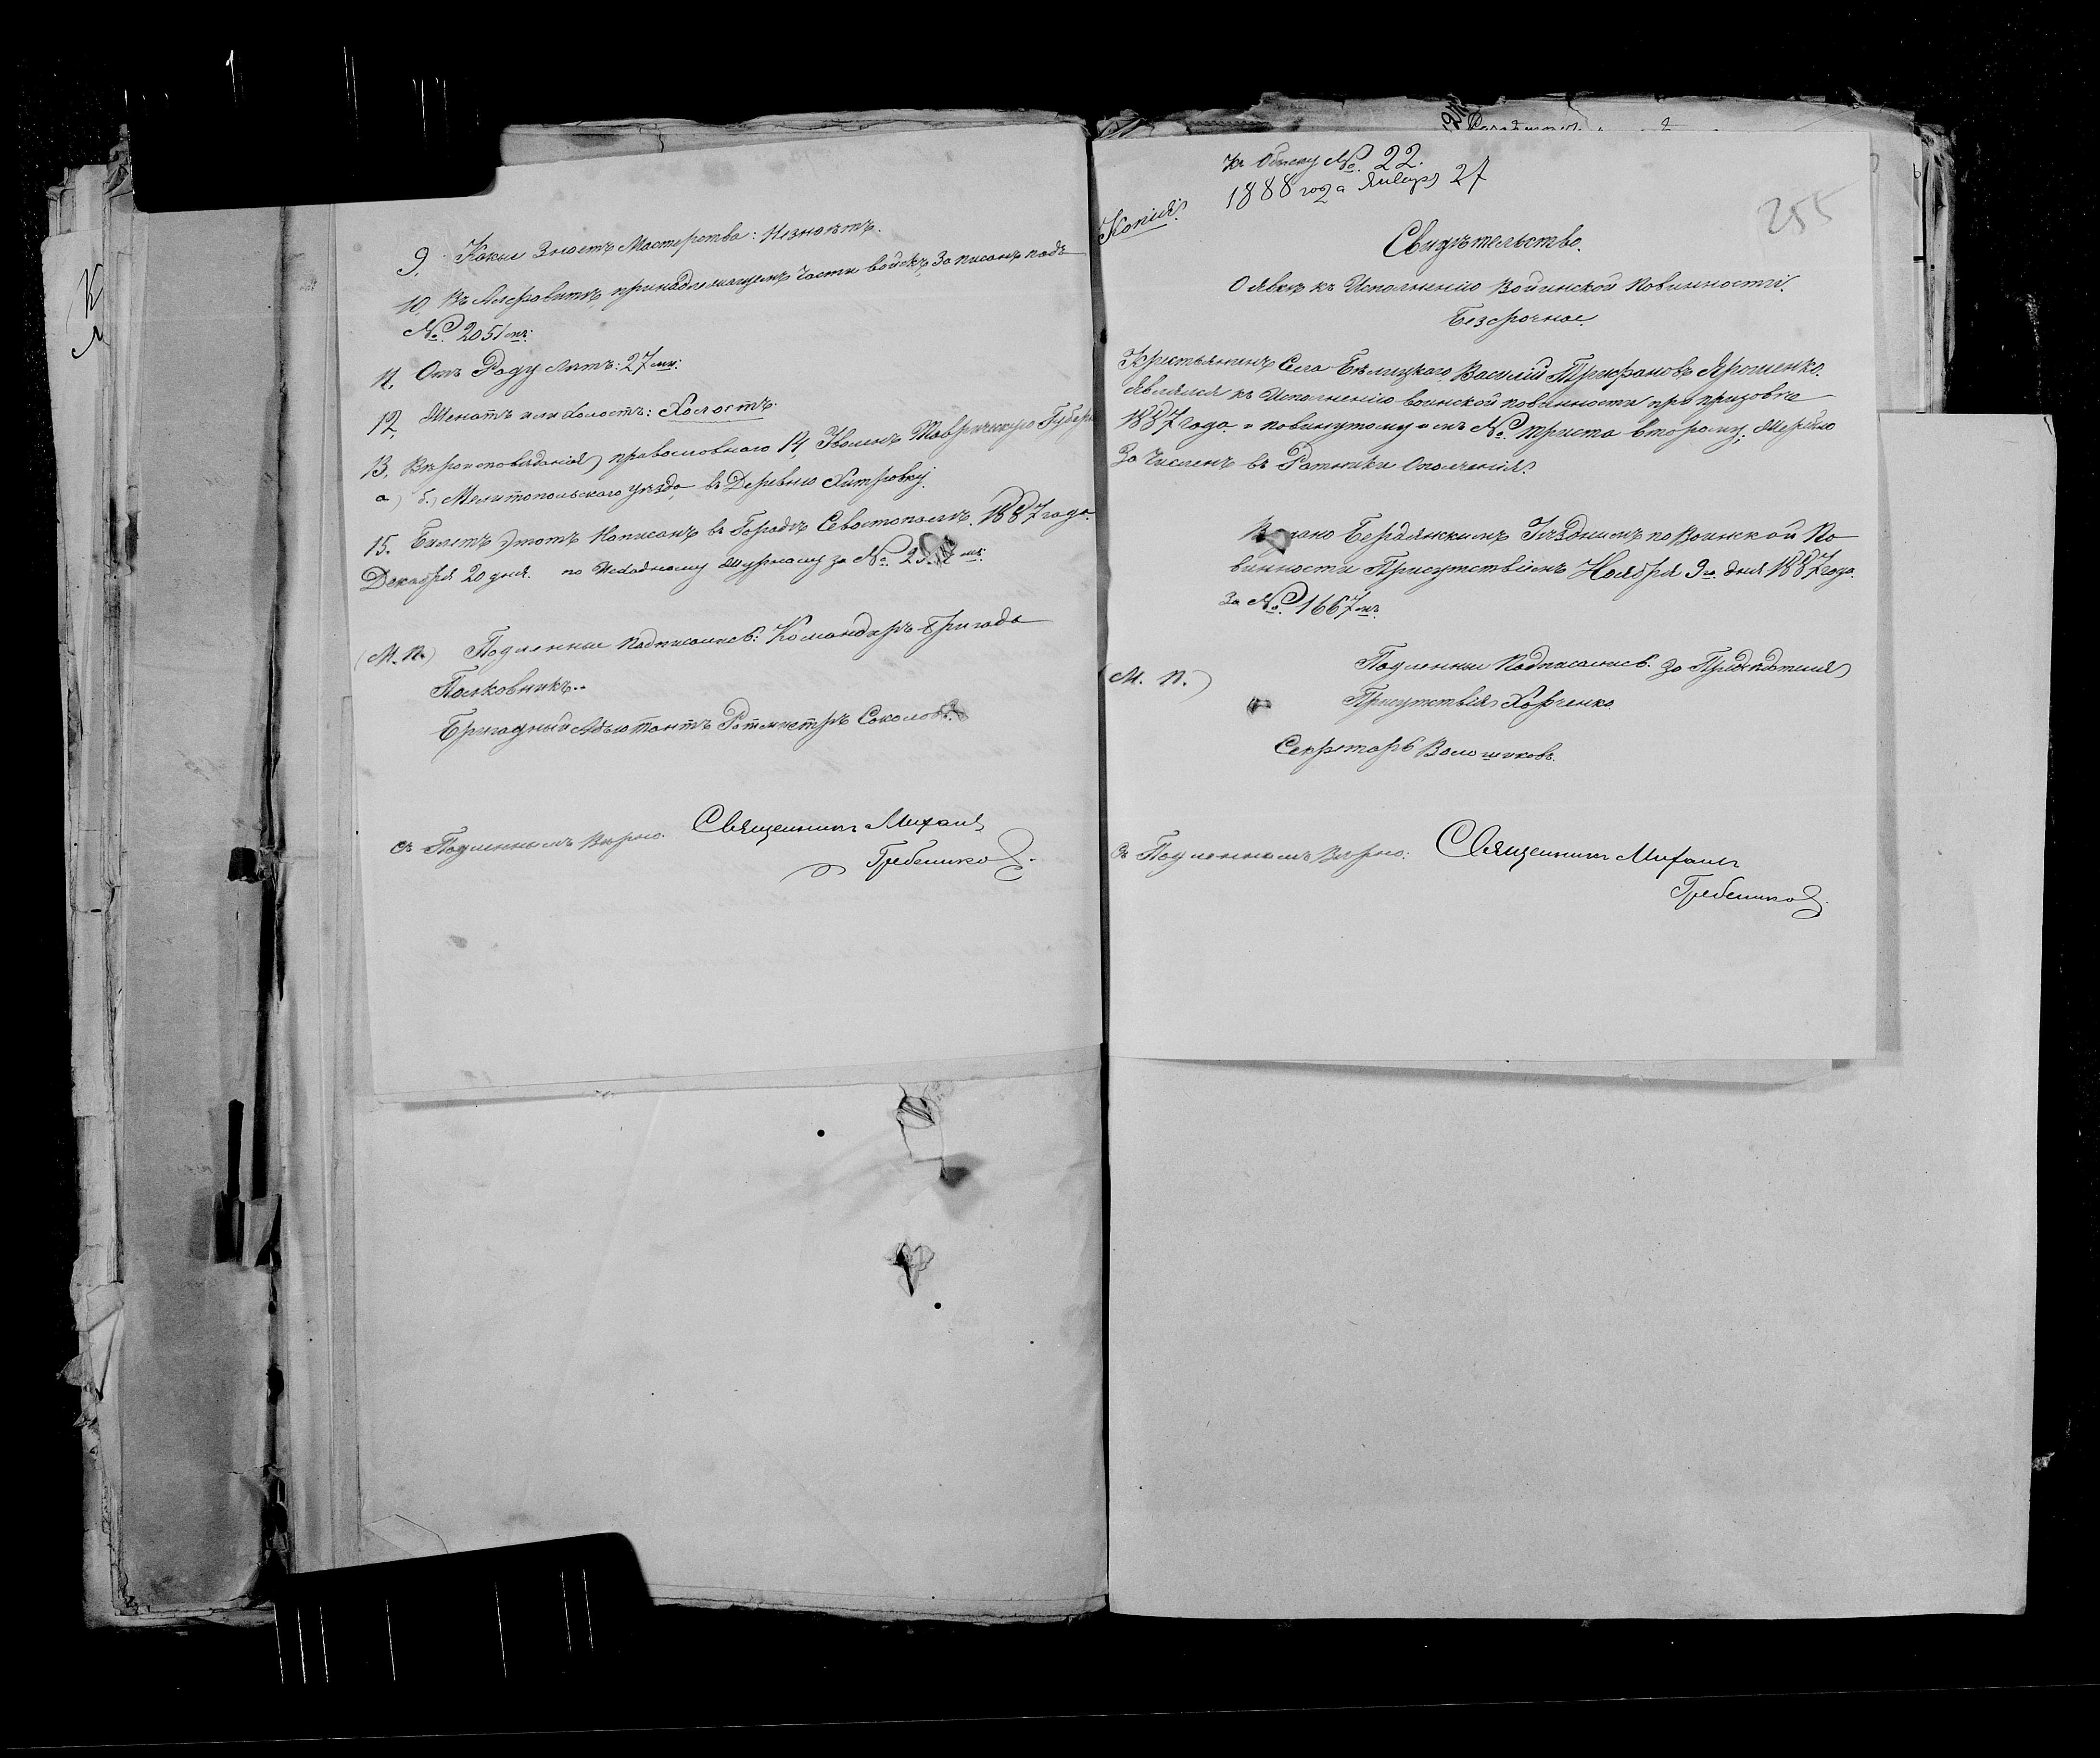 9. Какые Знаетъ Мастерства: Незнаетъ.
10. Въ Алфавитѣ, принадлежащемъ Части войскъ, Записанъ подъ
№ 2051мъ:
11. Отъ Роду Лѣтъ: 27мь:
12. Женатъ или холостъ: Холостъ.
13. Вѣроисповѣданія православнаго 14, Уволенъ Таврическую Губер
а) б.) Мелитопольскаго уѣзда, въ Деревню Хитровку.
15. Билетъ этотъ Написанъ въ Городѣ Севастополѣ. 1887 года.
Декабря 20 дня. по Исходному Журналу за №
(М. П.) Подленные Подписались: Командиръ Бригады
Полковникъ..
Бригадный Адьютантъ Ротмистръ Соколовъ
Съ Подленнымъ Вѣрно. Священникъ Михаилъ
Гребенниковъ.
Къ Обыску № 22.
1888 года Января 27
Копія.
255
Свидѣтельство.
О явкѣ къ Исполненію Воинской Повинности.
Безсрочное.
Крестьянинъ Села Бѣлицкаго, Василій Трифановъ Ярошенко.
Являлся къ Исполненію воинской повинности при призовѣ
1887 Года. и повинутому имъ № триста второму; Жеребію
За Численъ въ Ратники Ополченія.
Выдано Бердянскимъ Уѣзднымъ по Воинской По
винности Присутствіемъ Ноября 9го дня 1887 года.
За № 1667мъ.
(М. П.)
Подленные Подписались. За Предсѣдателя
Присутствія Харченко
Секретарь Волошиковъ.
Съ Подленнымъ Вѣрно: Священникъ Михаилъ
Гребенниковъ.